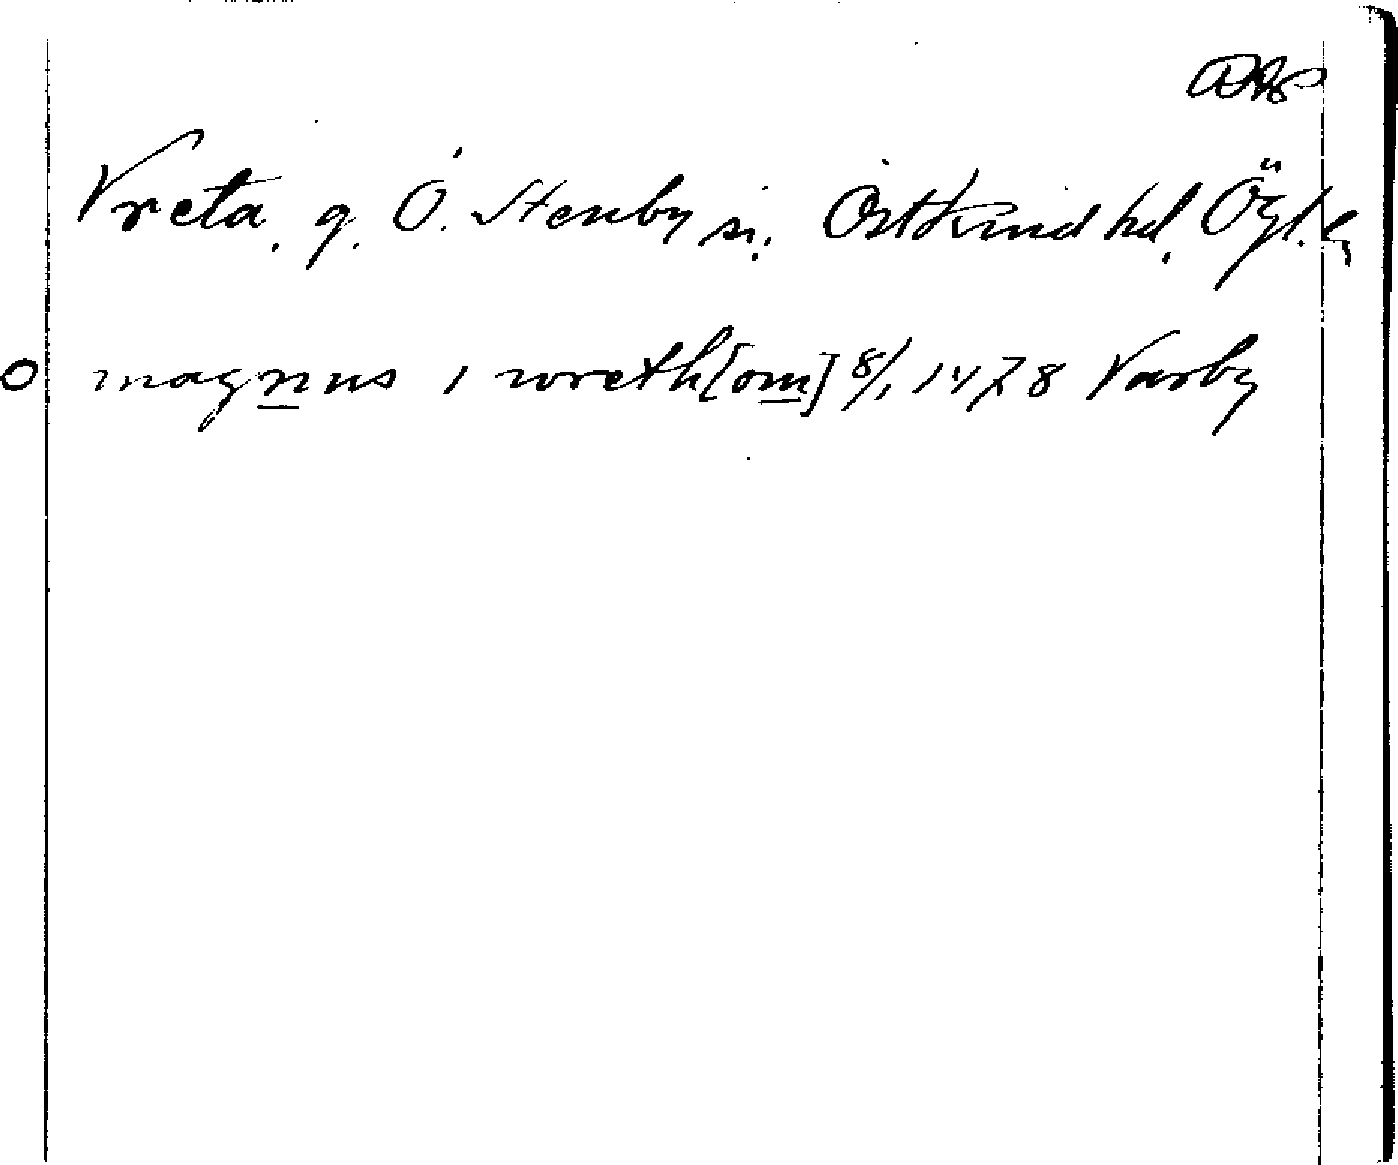 Vreta, g. Ö. Stenby sn. Östkind hd. Ögl.
magnus i wreth[om] 8/1 1478 Varby